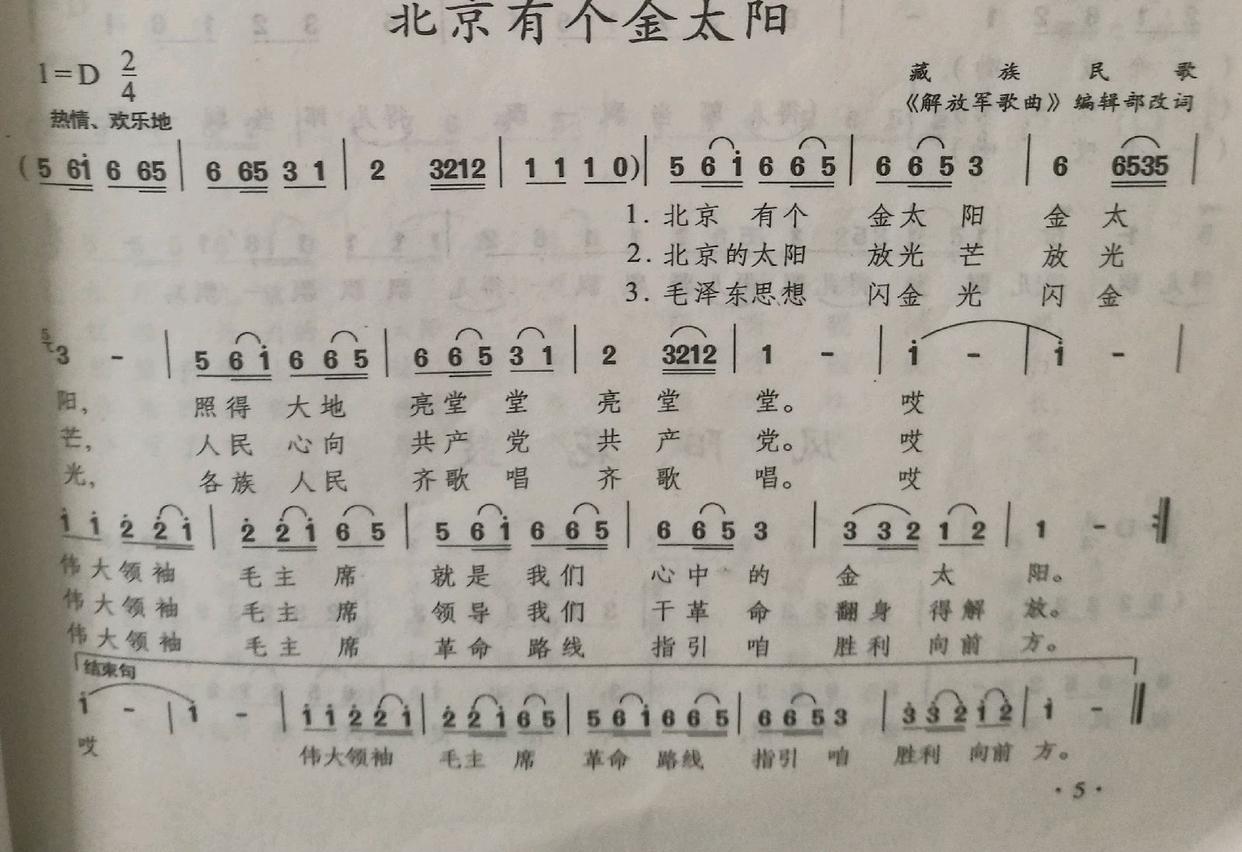 北京有个金太阳
1=D 2/4
藏族民歌
热情、欢乐地
《解放军歌曲》编辑部改词
(5 6i 6 65 | 6 65 3 1 | 2 3212 | 1 1 1 0) | 5 6 i 6 6 5 | 6 6 5 3 | 6 6535 |
1. 北京 有个 金太 阳 金 太
2. 北京的太阳 放光 芒 放 光
3. 毛泽东思想 闪金 光 闪 金
3 - | 5 6 i 6 6 5 | 6 6 5 3 1 | 2 3212 | 1 - | i - | i - |
阳, 照得 大地 亮堂 堂 亮 堂 堂。 哎
芒, 人民 心向 共产 党 共 产 党。 哎
光, 各族 人民 齐歌 唱 齐 歌 唱。 哎
i i 2̇ 2̇ i | 2̇ 2̇ i 6 5 | 5 6 i 6 6 5 | 6 6 5 3 | 3 3 2 1 2 | 1 - :‖
伟大领袖 毛主 席 就是 我们 心中 的 金 太 阳。
伟大领袖 毛主 席 领导 我们 干革 命 翻身 得解 放。
伟大领袖 毛主 席 革命 路线 指引 咱 胜利 向前 方。
结束句
i - | i - | i i 2̇ 2̇ i | 2̇ 2̇ i 6 5 | 5 6 i 6 6 5 | 6 6 5 3 | 3̇ 3̇ 2̇ i 2̇ | i - ‖
哎 伟大领袖 毛主 席 革命 路线 指引 咱 胜利 向前 方。
·5·